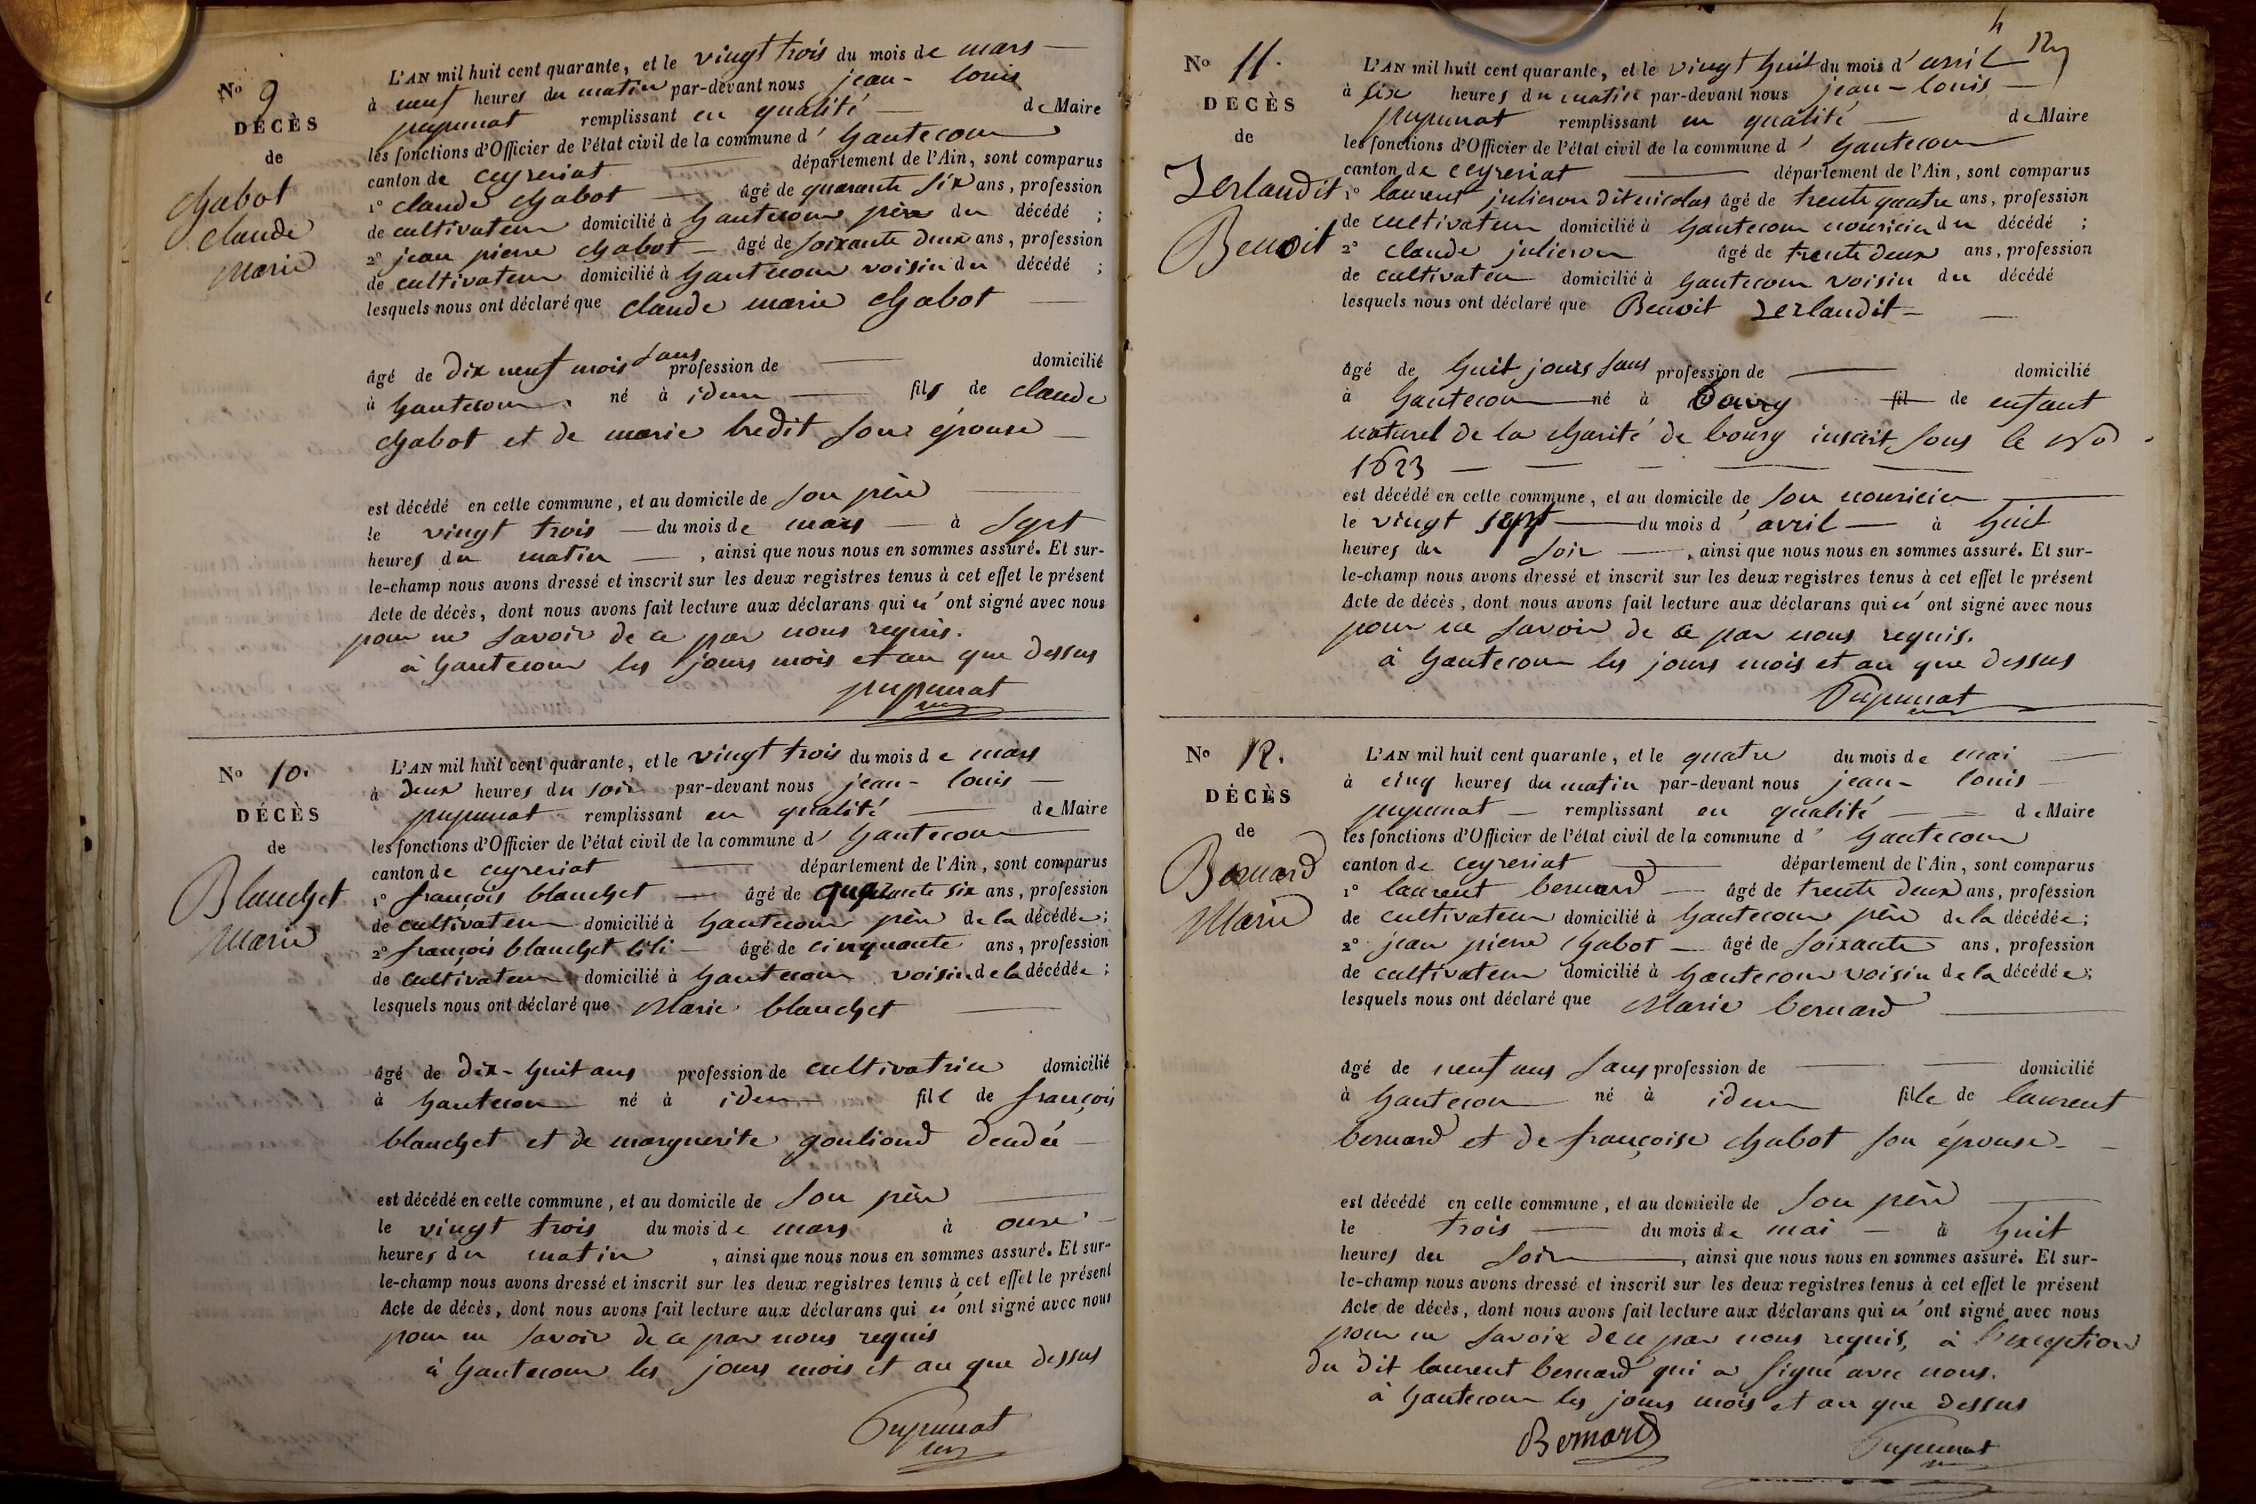 No 9
DÉCÈS
de
chabot
claude
marie
L'AN mil huit cent quarante, et le vingt trois du mois de mars
à neuf heures du matin par-devant nous jean-louis
pupunat remplissant en qualité de Maire
les fonctions d'Officier de l'état civil de la commune d'hautecour
canton de ceyzeriat département de l'Ain, sont comparus
1° claude chabot âgé de quarante six ans, profession
de cultivateur domicilié à hautecour père du décédé ;
2° jean pierre chabot âgé de soixante deux ans, profession
de cultivateur domicilié à hautecour voisin du décédé ;
lesquels nous ont déclaré que claude marie chabot
âgé de dix neuf mois sans profession de domicilié
à hautecour né à idem fils de claude
chabot et de marie bredit son épouse
est décédé en cette commune, et au domicile de son père
le vingt trois du mois de mars à sept
heures du matin, ainsi que nous nous en sommes assuré. Et sur-
le-champ nous avons dressé et inscrit sur les deux registres tenus à cet effet le présent
Acte de décès, dont nous avons fait lecture aux déclarans qui n'ont signé avec nous
pour ne savoir de ce par nous requis.
à hautecour les jours mois et an que dessus
pupunat
No 10.
DÉCÈS
de
Blanchet
marie
L'AN mil huit cent quarante, et le vingt trois du mois de mars
à deux heures du soir par-devant nous jean-louis
pupunat remplissant en qualité de Maire
les fonctions d'Officier de l'état civil de la commune d'hautecour
canton de ceyzeriat département de l'Ain, sont comparus
1° françois blanchet âgé de quarante six ans, profession
de cultivateur domicilié à hautecour père de la décédée ;
2° françois blanchet âgé de cinquante ans, profession
de cultivateur domicilié à hautecour voisin de la décédée ;
lesquels nous ont déclaré que Marie blanchet
âgé de dix-huit ans profession de cultivatrice domicilié
à hautecour né à idem fille de françois
blanchet et de marguerite
est décédé en cette commune, et au domicile de son père
le vingt trois du mois de mars à onze
heures du matin, ainsi que nous nous en sommes assuré. Et sur-
le-champ nous avons dressé et inscrit sur les deux registres tenus à cet effet le présent
Acte de décès, dont nous avons fait lecture aux déclarans qui n'ont signé avec nous
pour ne savoir de ce par nous requis
à hautecour les jours mois et an que dessus
Pupunat
No 11.
DÉCÈS
de
Zerlaudit
Benoit
L'AN mil huit cent quarante, et le vingt huit du mois d'avril
à six heures du matin par-devant nous jean-louis
pupunat remplissant en qualité de Maire
les fonctions d'Officier de l'état civil de la commune d'hautecour
canton de ceyzeriat département de l'Ain, sont comparus
1° laurent julieron dit nicolas âgé de trente quatre ans, profession
de cultivateur domicilié à hautecour nouricier du décédé ;
2° claude julieron âgé de trente deux ans, profession
de cultivateur domicilié à hautecour voisin du décédé
lesquels nous ont déclaré que Benoit Zerlaudit
âgé de huit jours sans profession de domicilié
à hautecour né à Bourg fil de enfant
naturel de la charité de bourg inscrit sous le No
1623
est décédé en cette commune, et au domicile de son nouricier
le vingt sept du mois d'avril à huit
heures du soir, ainsi que nous nous en sommes assuré. Et sur-
le-champ nous avons dressé et inscrit sur les deux registres tenus à cet effet le présent
Acte de décès, dont nous avons fait lecture aux déclarans qui n'ont signé avec nous
pour ne savoir de ce par nous requis.
à hautecour les jours mois et an que dessus
Pupunat
No 12.
DÉCÈS
de
Bernard
Marie
L'AN mil huit cent quarante, et le quatre du mois de mai
à cinq heures du matin par-devant nous jean-louis
pupunat remplissant en qualité de Maire
les fonctions d'Officier de l'état civil de la commune d'hautecour
canton de ceyzeriat département de l'Ain, sont comparus
1° laurent bernard âgé de trente deux ans, profession
de cultivateur domicilié à hautecour père de la décédée ;
2° jean pierre chabot âgé de soixante ans, profession
de cultivateur domicilié à hautecour voisin de la décédée ;
lesquels nous ont déclaré que Marie bernard
âgé de neuf ans sans profession de domicilié
à hautecour né à idem fille de laurent
bernard et de françoise chabot son épouse
est décédé en cette commune, et au domicile de son père
le trois du mois de mai à huit
heures du soir, ainsi que nous nous en sommes assuré. Et sur-
le-champ nous avons dressé et inscrit sur les deux registres tenus à cet effet le présent
Acte de décès, dont nous avons fait lecture aux déclarans qui n'ont signé avec nous
pour ne savoir de ce par nous requis, à l'exception
du dit laurent bernard qui a signé avec nous.
à hautecour les jours mois et an que dessus
Bernard Pupunat